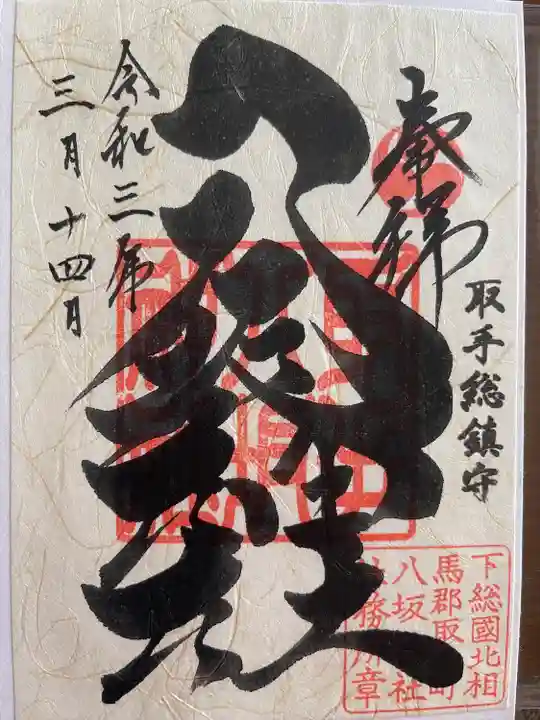 奉拝
取手総鎮守
八坂神社
令和三年
三月十四日
下総國北相
馬郡取
八坂 社
務所章